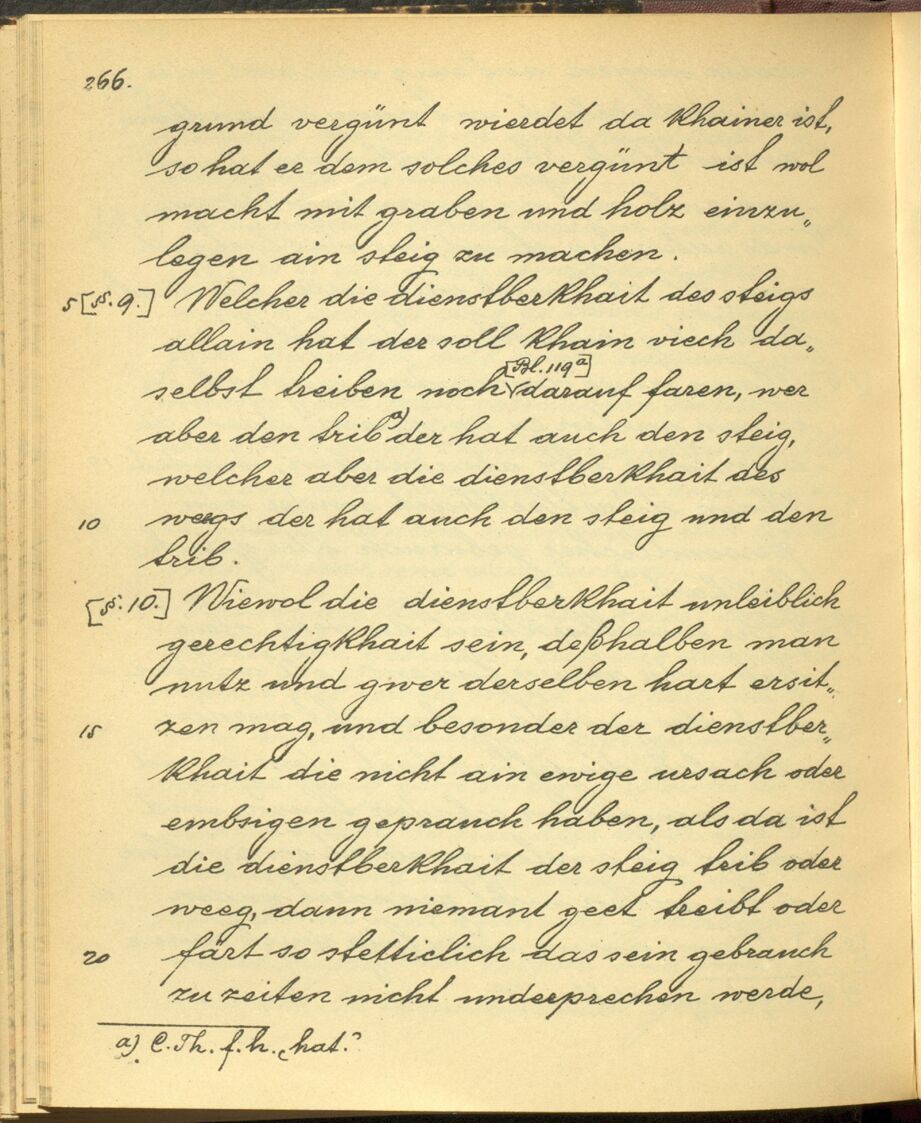 266.
grund vergünt wierdet da khainer ist,
so hat er dem solches vergünt ist wol
macht mit graben und holz einzu„
legen ain steig zu machen.
5 [§. 9.] Welcher die dienstberkhait des steigs
allain hat der soll khain viech da„
[Bl. 119a]
selbst treiben noch darauf faren, wer
aber den trib a) der hat auch den steig,
welcher aber die dienstberkhait des
10 weegs der hat auch den steig und den
trib.
[§. 10.] Wiewol die dienstberkhait unleiblich
gerechtigkhait sein, deßhalben man
nutz und gwer derselben hart ersit„
15 zen mag, und besonder der dienstber„
khait die nicht ain ewige ursach oder
embsigen geprauch haben, als da ist
die dienstberkhait der steig trib oder
weeg, dann niemant geet treibt oder
20 färt so stetticlich das sein gebrauch
zu zeiten nicht undersprechen werde,
a). C. Th. f. h. „hat."